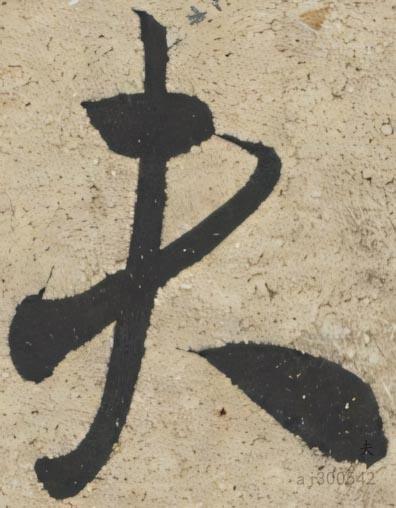 夫
夫
aj300642